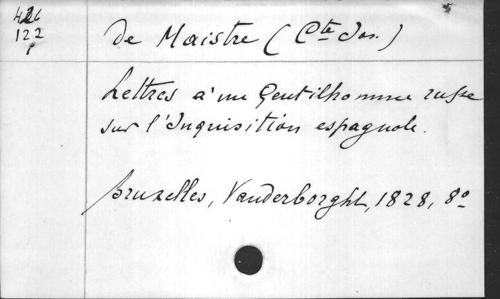 426
122
1
De Maistre (Cte Jos.)
Lettres à un Gentilhomme russe
sur l'Inquisition espagnole.
Bruxelles, Vanderborght, 1828, 8º